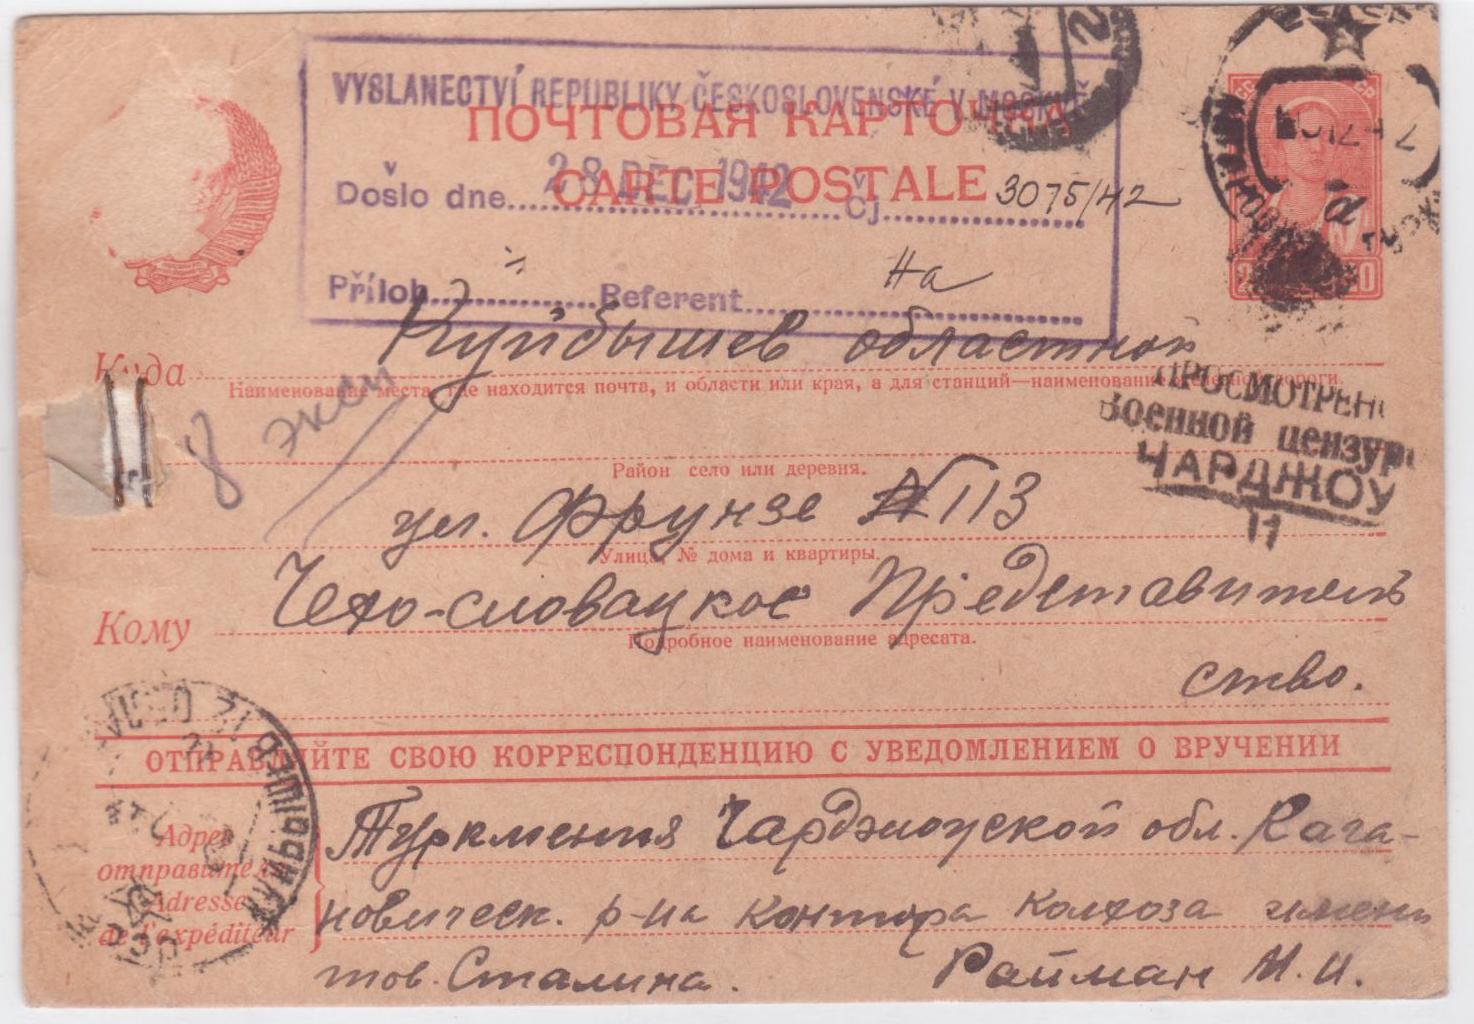 VYSLANECTVÍ REPUBLIKY ČESKOSLOVENSKÉ V MOSKVĚ
ПОЧТОВАЯ КАРТОЧКА
Došlo dne 28 DEC 1942 Čj. 3075/42
CARTE POSTALE
Příloh Referent
Куда Куйбышев областной
Наименование места, где находится почта, и области или края, а для станций—наименование железной дороги.
8
ПРОСМОТРЕНО
Военной цензурой
ЧАРДЖОУ
11
Район село или деревня.
ул. Фрунзе № 113
Улица, № дома и квартиры.
Кому Чехо-словацкое Представитель
Подробное наименование адресата.
ство.
ОТПРАВЛЯЙТЕ СВОЮ КОРРЕСПОНДЕНЦИЮ С УВЕДОМЛЕНИЕМ О ВРУЧЕНИИ
Адрес
отправителя
Adresse
de l'expéditeur
Туркмения Чарджоуской обл. Кага-
новическ. р-на контора колхоза имени
тов. Сталина. Райман М. И.